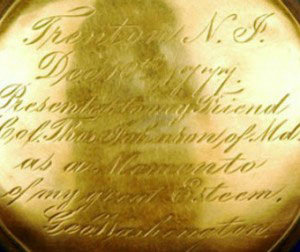 Trenton N.J.
Dec. 1777.
Presented to my Friend
Col. Thos. Johnson, of Md.
as a Momento
of my great Esteem.
Geo Washington